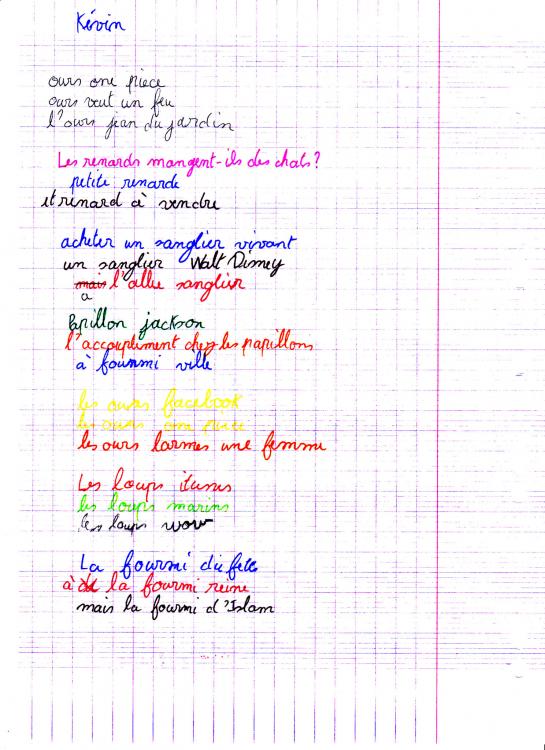 Kévin
ours one piece
ours veut un feu
l'ours jean du jardin
Les renards mangent-ils des chats?
petite renarde
et renard à vendre
acheter un sanglier vivant
un sanglier Walt Disney
mais l'allu sanglier
a
Papillon jackson
l'accoupliment chez les papillons
à fourmi ville
les ours facebook
les ours one piece
les ours larmes une femme
Les loups itunes
les loups marins
les loups wow
La fourmi du
à la fourmi reine
mais la fourmi d'Islam